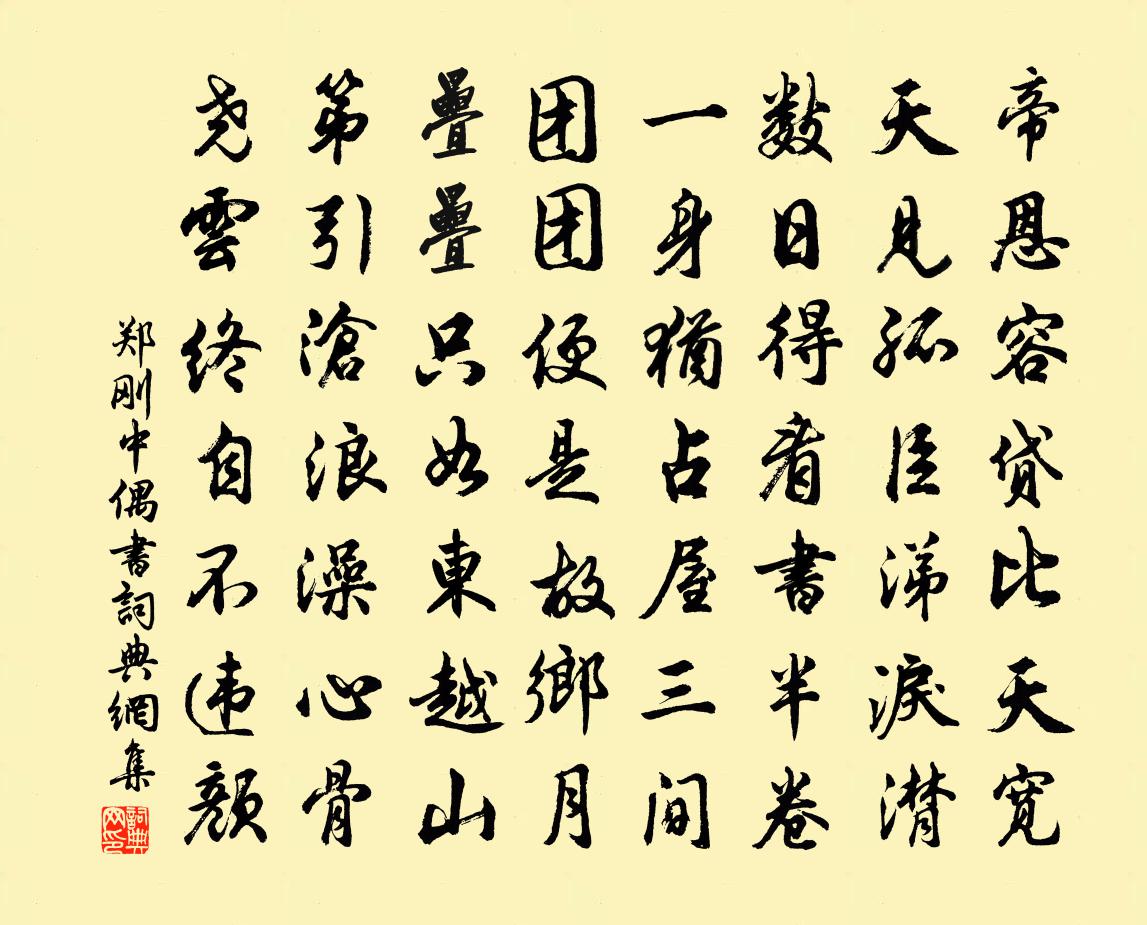 帝恩容贷比天寛
天见孤臣涕淚潸
数日得看書半卷
一身猶占屋三间
团团便是故鄉月
疊疊只如東越山
第引滄浪澡心骨
尧雲终自不违顔
郑刚中偶書詞典網集
詞典网印